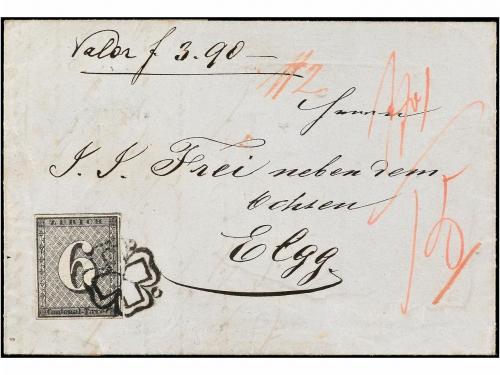 Valor f 3.90 —
#2
Herrn
J. J. Frei neben dem
Ochsen
Elgg.
15
ZÜRICH
6
Cantonal-Taxe